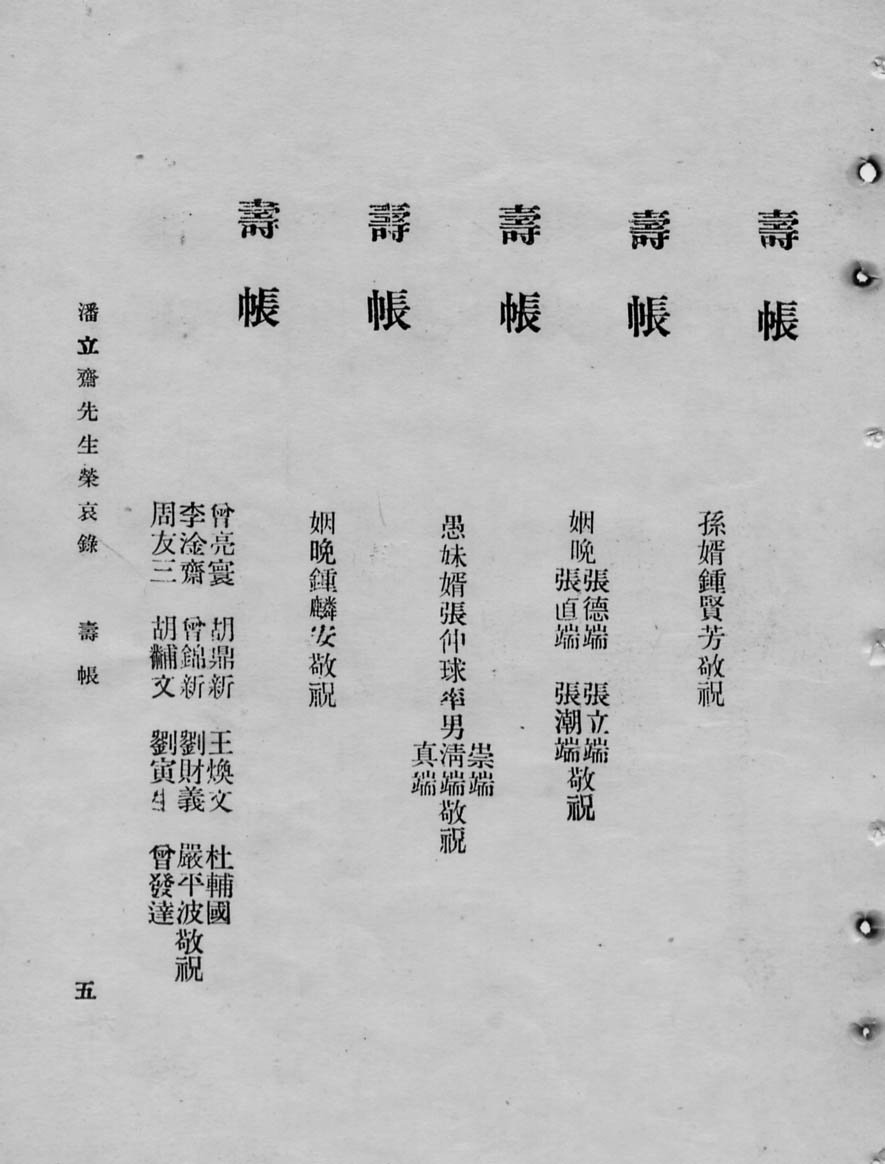 壽帳
孫婿鍾賢芳敬祝
壽帳
姻晚張德端 張立端
張直端 張潮端敬祝
壽帳
愚妹婿張仲球率男崇端
清端敬祝
真端
壽帳
姻晚鍾麟安敬祝
壽帳
曾亮寰 胡鼎新 王煥文 杜輔國
李淦齋 曾錦新 劉財義 嚴平波敬祝
周友三 胡黼文 劉寅生 曾發達
潘立齋先生榮哀錄 壽帳 五